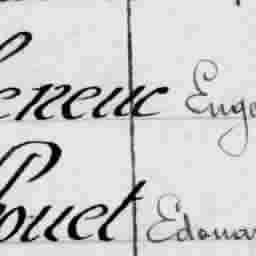 eneuc Euge
ouet Edouar